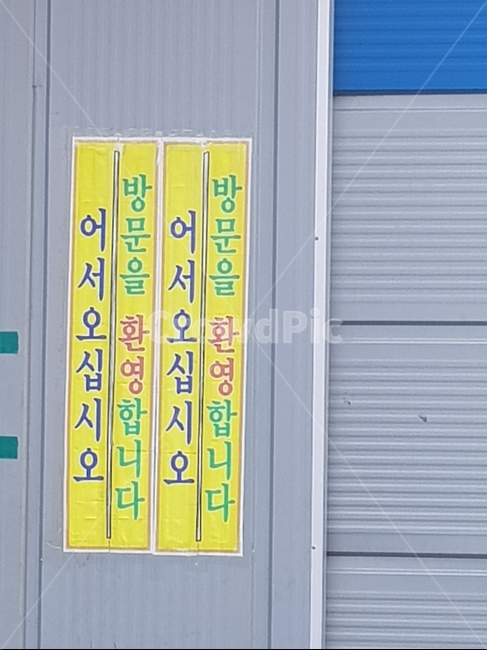 방문을 환영합니다
어서오십시오
방문을 환영합니다
어서오십시오
CrowdPic